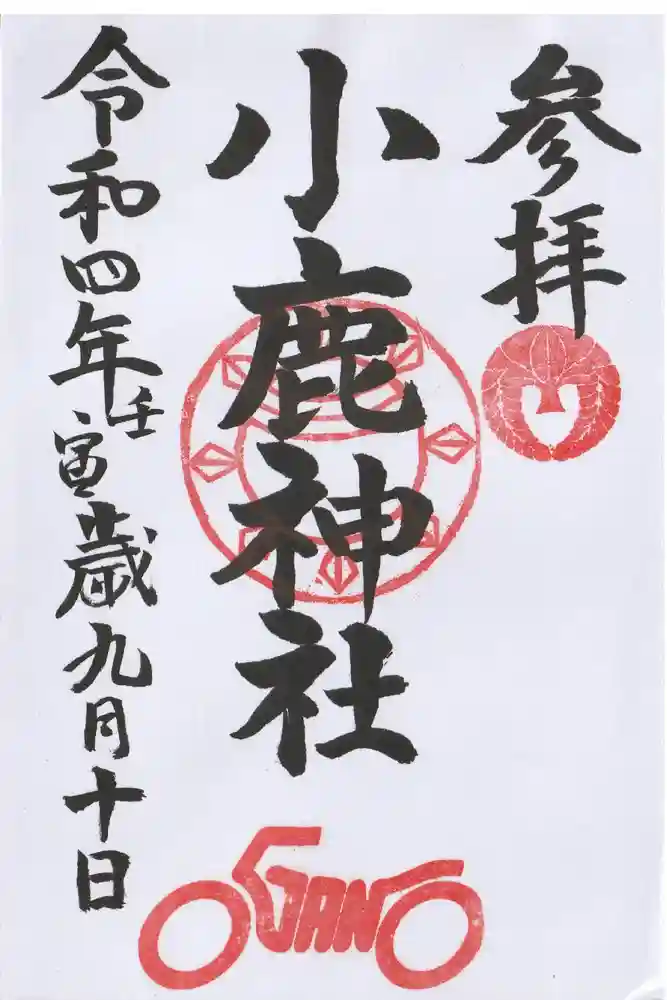 参拝
小鹿神社
令和四年壬寅歳九月十日
OGANO